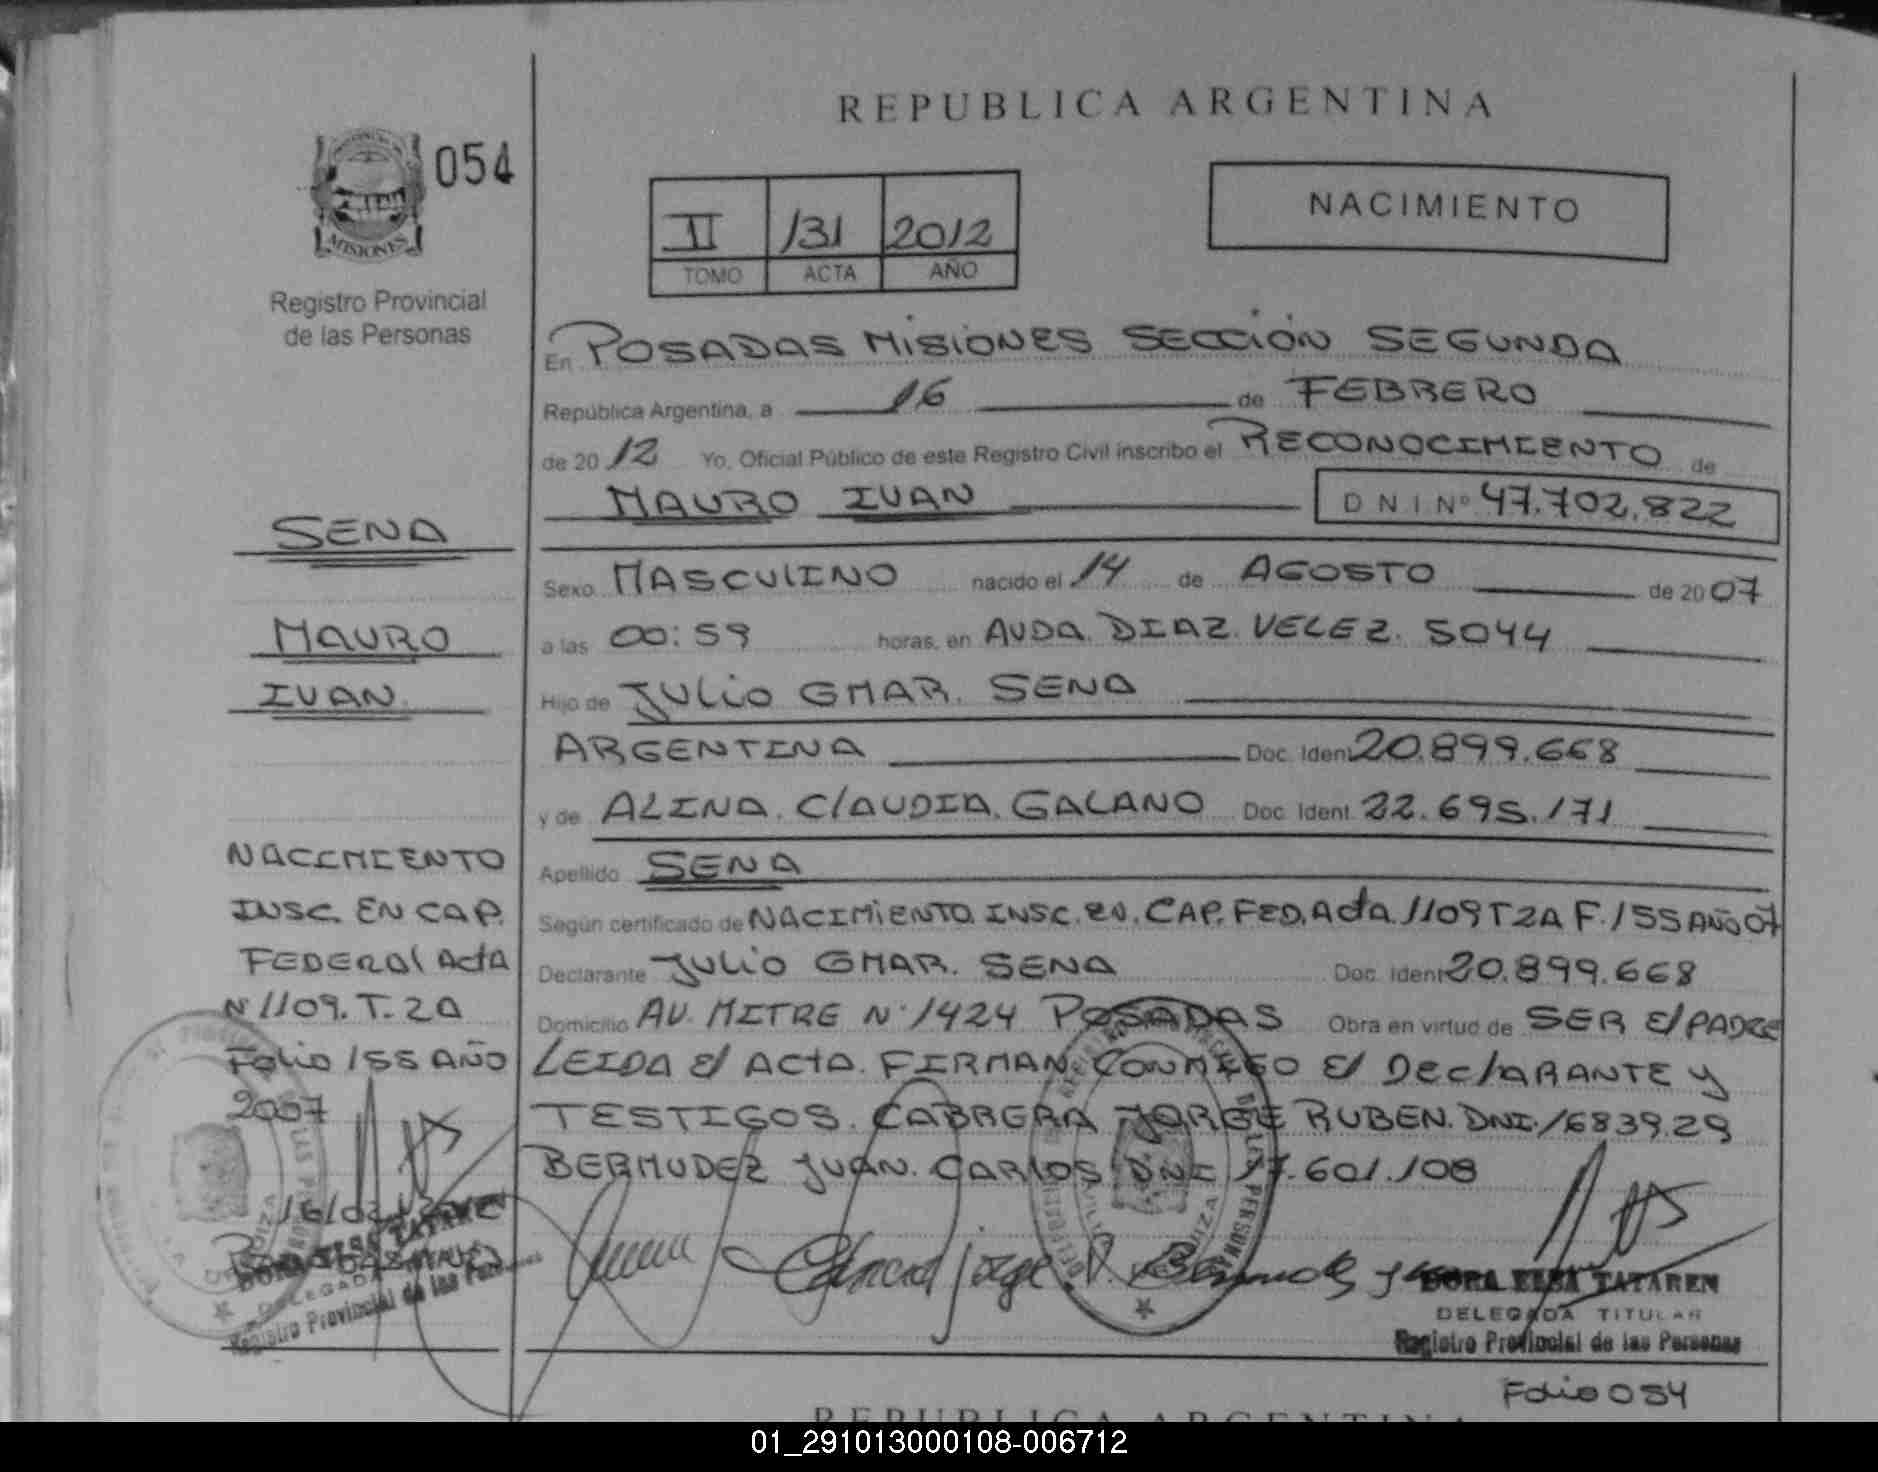 REPUBLICA ARGENTINA
054
MISIONES
Registro Provincial
de las Personas
II 131 2012
TOMO ACTA AÑO
NACIMIENTO
En POSADAS MISIONES SECCIÓN SEGUNDA
República Argentina, a 16 de FEBRERO
de 2012 Yo, Oficial Público de este Registro Civil inscribo el RECONOCIMIENTO de
MAURO IVAN DNI Nº 47.702.822
Sexo MASCULINO nacido el 14 de AGOSTO de 2007
a las 00:59 horas, en AVDA. DIAZ. VELEZ. 5044
Hijo de JULIO GMAR. SENA
ARGENTINA Doc. Ident 20.899.668
y de ALINA. CLAUDIA. GALANO Doc. Ident. 22.695.171
Apellido SENA
Según certificado de NACIMIENTO. INSC. EN. CAP. FED. Acta. 1109 T2A F. 155 AÑO 07
Declarante JULIO GMAR. SENA Doc. Ident 20.899.668
Domicilio AV. MITRE Nº 1424 POSADAS Obra en virtud de SER El PADRE
LEIDA El ACTA. FIRMAN. CONMIGO El DEClARANTE y
TESTIGOS. CABRERA JORGE RUBEN. DNI. 1683929
BERMUDEZ JUAN. CARLOS DNI 17.601.108
SENA
MAURO
IVAN.
NACIMIENTO
INSC. EN CAP.
FEDERAl ActA
Nº 1109. T. 2A
Folio 155 AÑO
2007
DORA ELSA TATAREN
DELEGADA
Registro Provincial de las Personas
Cabrera Jorge R.
DORA ELSA TATAREN
DELEGADA TITULAR
Registro Provincial de las Personas
Folio 054
REPUBLICA ARGENTINA
01_291013000108-006712